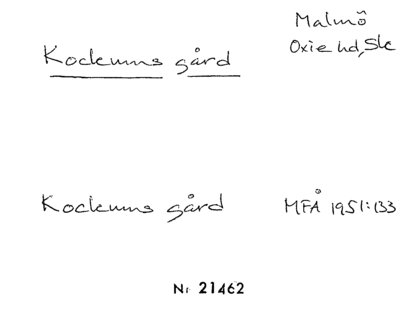 Malmö
Kockums gård
Oxie hd, Sk
Kockums gård MFÅ 1951:133
Nr 21462